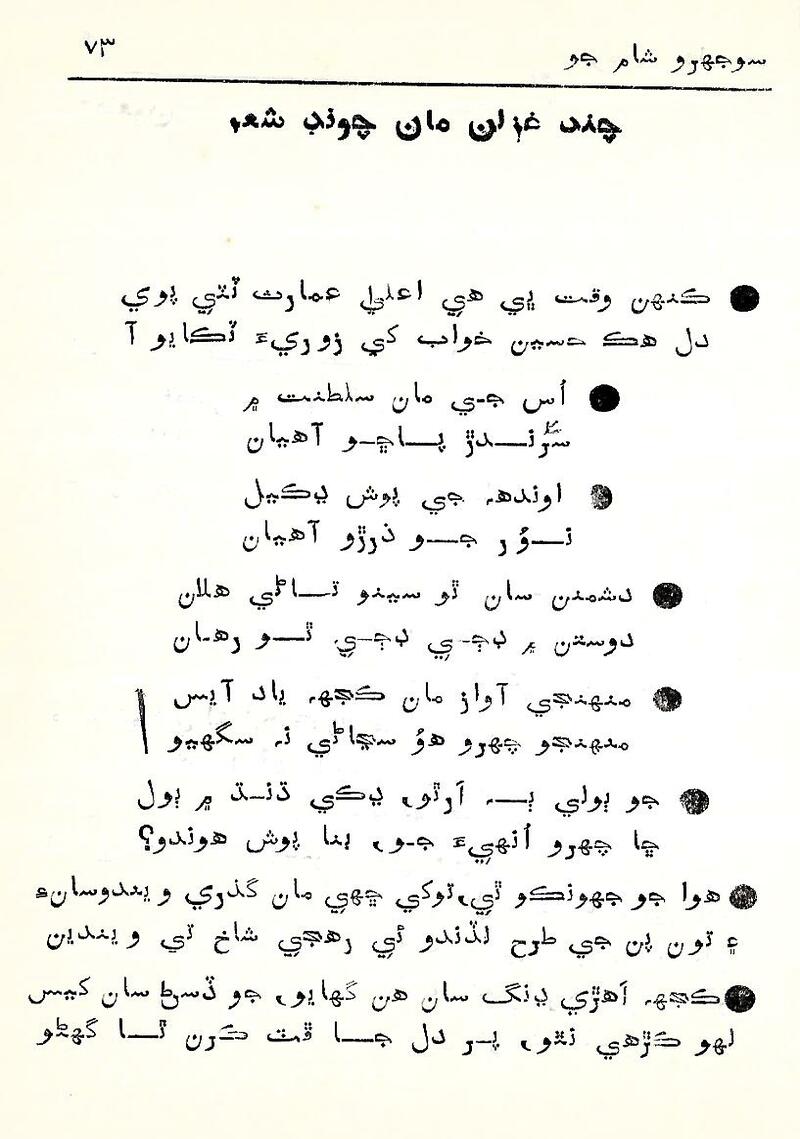 سوجهرو شام جو
٧٣
چند غزلن مان چونڊ شعر
ڪنهن وقت ڀي هي اعليٰ عمارت ٽٽي پوي
دل هڪ حسين خواب کي زوريءَ ٽڪايو آ
اُس جي مان سلطنت ۾
سڙندڙ پاڇو آهيان
اونده جي پوش ڍڪيل
نُور جو ذرڙو آهيان
دشمنن سان ٿو سينو تاڻي هلان
دوستن ۾ ڊڄي ڊڄي ٿو رهان
منهنجي آواز مان ڪجهه ياد آيس
منهنجو چهرو هوُ سڃاڻي نه سگهيو
جو ٻولي به اَڻو ڍڪي ڌنڌ ۾ ٻول
ڇا چهرو اُنهيءَ جو، بنا پوش هوندو؟
هوا جو جهونڪو ٿي، توکي ڇهي مان گذري ويندوسانءِ
۽ تون پن جي طرح لڏندو ئي رهجي شاخ تي ويندين
ڪجهه اَهڙي ڍنگ سان هن گهايو، جو ڏسڻ سان ڪيس
لهو ڳڙهي نٿو، پر دل جا ڦٽ ڪرن ٿا گهڻو